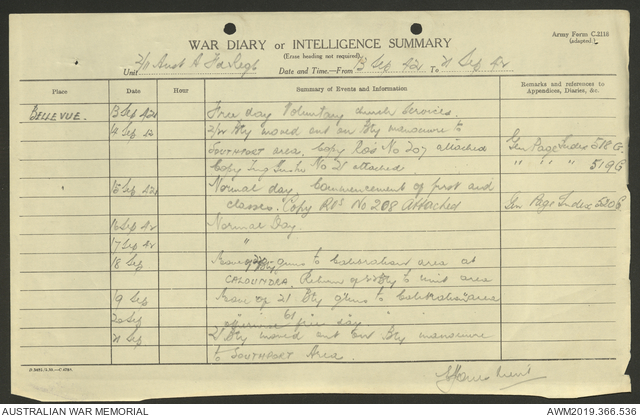 Army Form C.2118
(adapted.)
WAR DIARY or INTELLIGENCE SUMMARY
(Erase heading not required).
Unit 2/11 Aust A Fd Regt
Date and Time.—From 13 Sep 42 To 21 Sep 42
Place Date Hour Summary of Events and Information Remarks and references to Appendices, Diaries, &c.
BELLEVUE. 13 Sep 42 Free day Voluntary church Services.
14 Sep 42 2/22 Bty moved out on Bty manoeuvre to
SOUTHPORT area. Copy Ro's No 207 attached Gen Page Index 518G
Copy No 21 attached. " " " 519G
15 Sep 42 Normal day. Commencement of and
classes. Copy RO's No 208 Attached Gen Page Index 520G
16 Sep 42 Normal Day.
17 Sep 42 "
18 Sep guns to Calibration area at
CALOUNDRA. Return of 22 Bty to unit area
19 Sep of 21 Bty guns to Calibration area
20 Sep
21 Sep 21 Bty moved out on Bty manoeuvre
to SOUTHPORT Area.
AUSTRALIAN WAR MEMORIAL
AWM2019.366.536